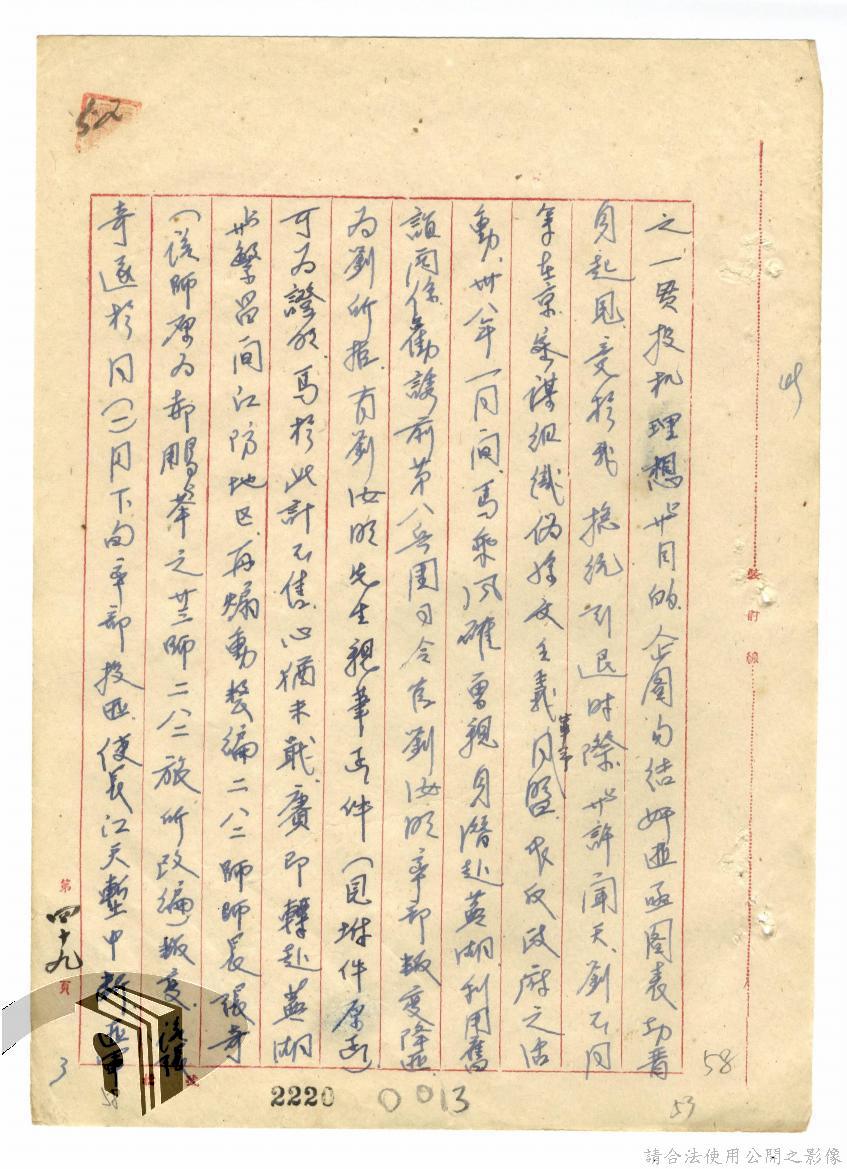 之一貫投机理想與目的,企圖勾结奸匪亟圖表功晋
身起見,竟於我 總統引退時際與許聞天、劉不同
等在京密謀組織偽孫文主義革命同盟作反政府之活
動,卅八年一月間,馬乘風確曾親身潛赴蕪湖,利用舊
誼關係勸誘前第八兵團司令官劉汝明率部叛變降匪
為劉所拒,有劉汝明先生親筆函件(見附件原函)
可為證明,馬於此計不售,心猶未戢,賡即轉赴蕪湖
與繁昌間江防地区,再煽動整編二八二師師長張奇
(該師原為郝鵬舉之 師二八二旅所改編)叛变,該張
奇遂於同(二)月下旬率部投匪,使長江天塹中 匪軍
裝訂線
第四十九頁
3
52
58
53
58
2220
0013
請合法使用公開之影像